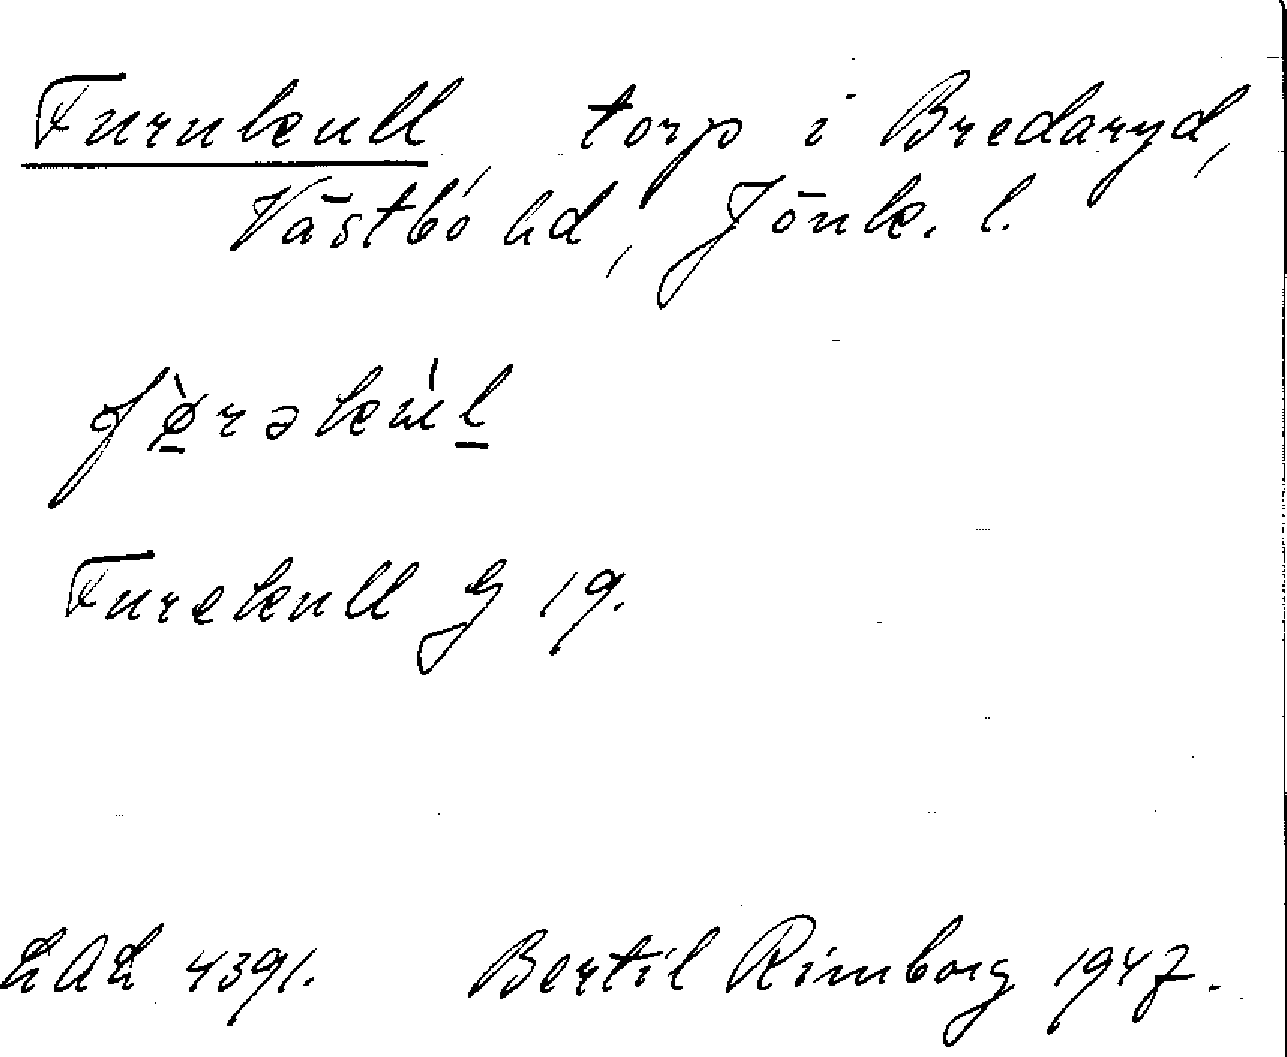 Furukull, torp i Bredaryd,
Västbo hd, Jönk. l.
fø̀rəkúl
Furekull G 19.
LAL 4391. Bertil Rimborg 1947.